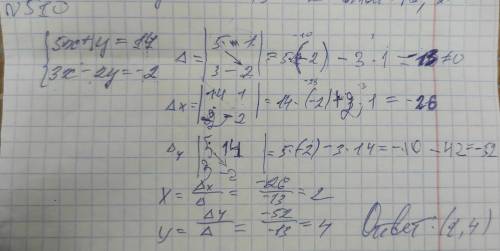 №510
{5x+y=14
{3x-2y=-2
Δ = |5 1; 3 -2| = 5·(-2) - 3·1 = -13 ≠0
Δx = |14 1; -2 -2| = 14·(-2)+2·1 = -26
Δy |5 14; 3 -2| = 5·(-2) - 3·14 = -10 - 42 = -52
X = Δx/Δ = -26/-13 = 2
y = Δy/Δ = -52/-13 = 4
Ответ: (2,4)